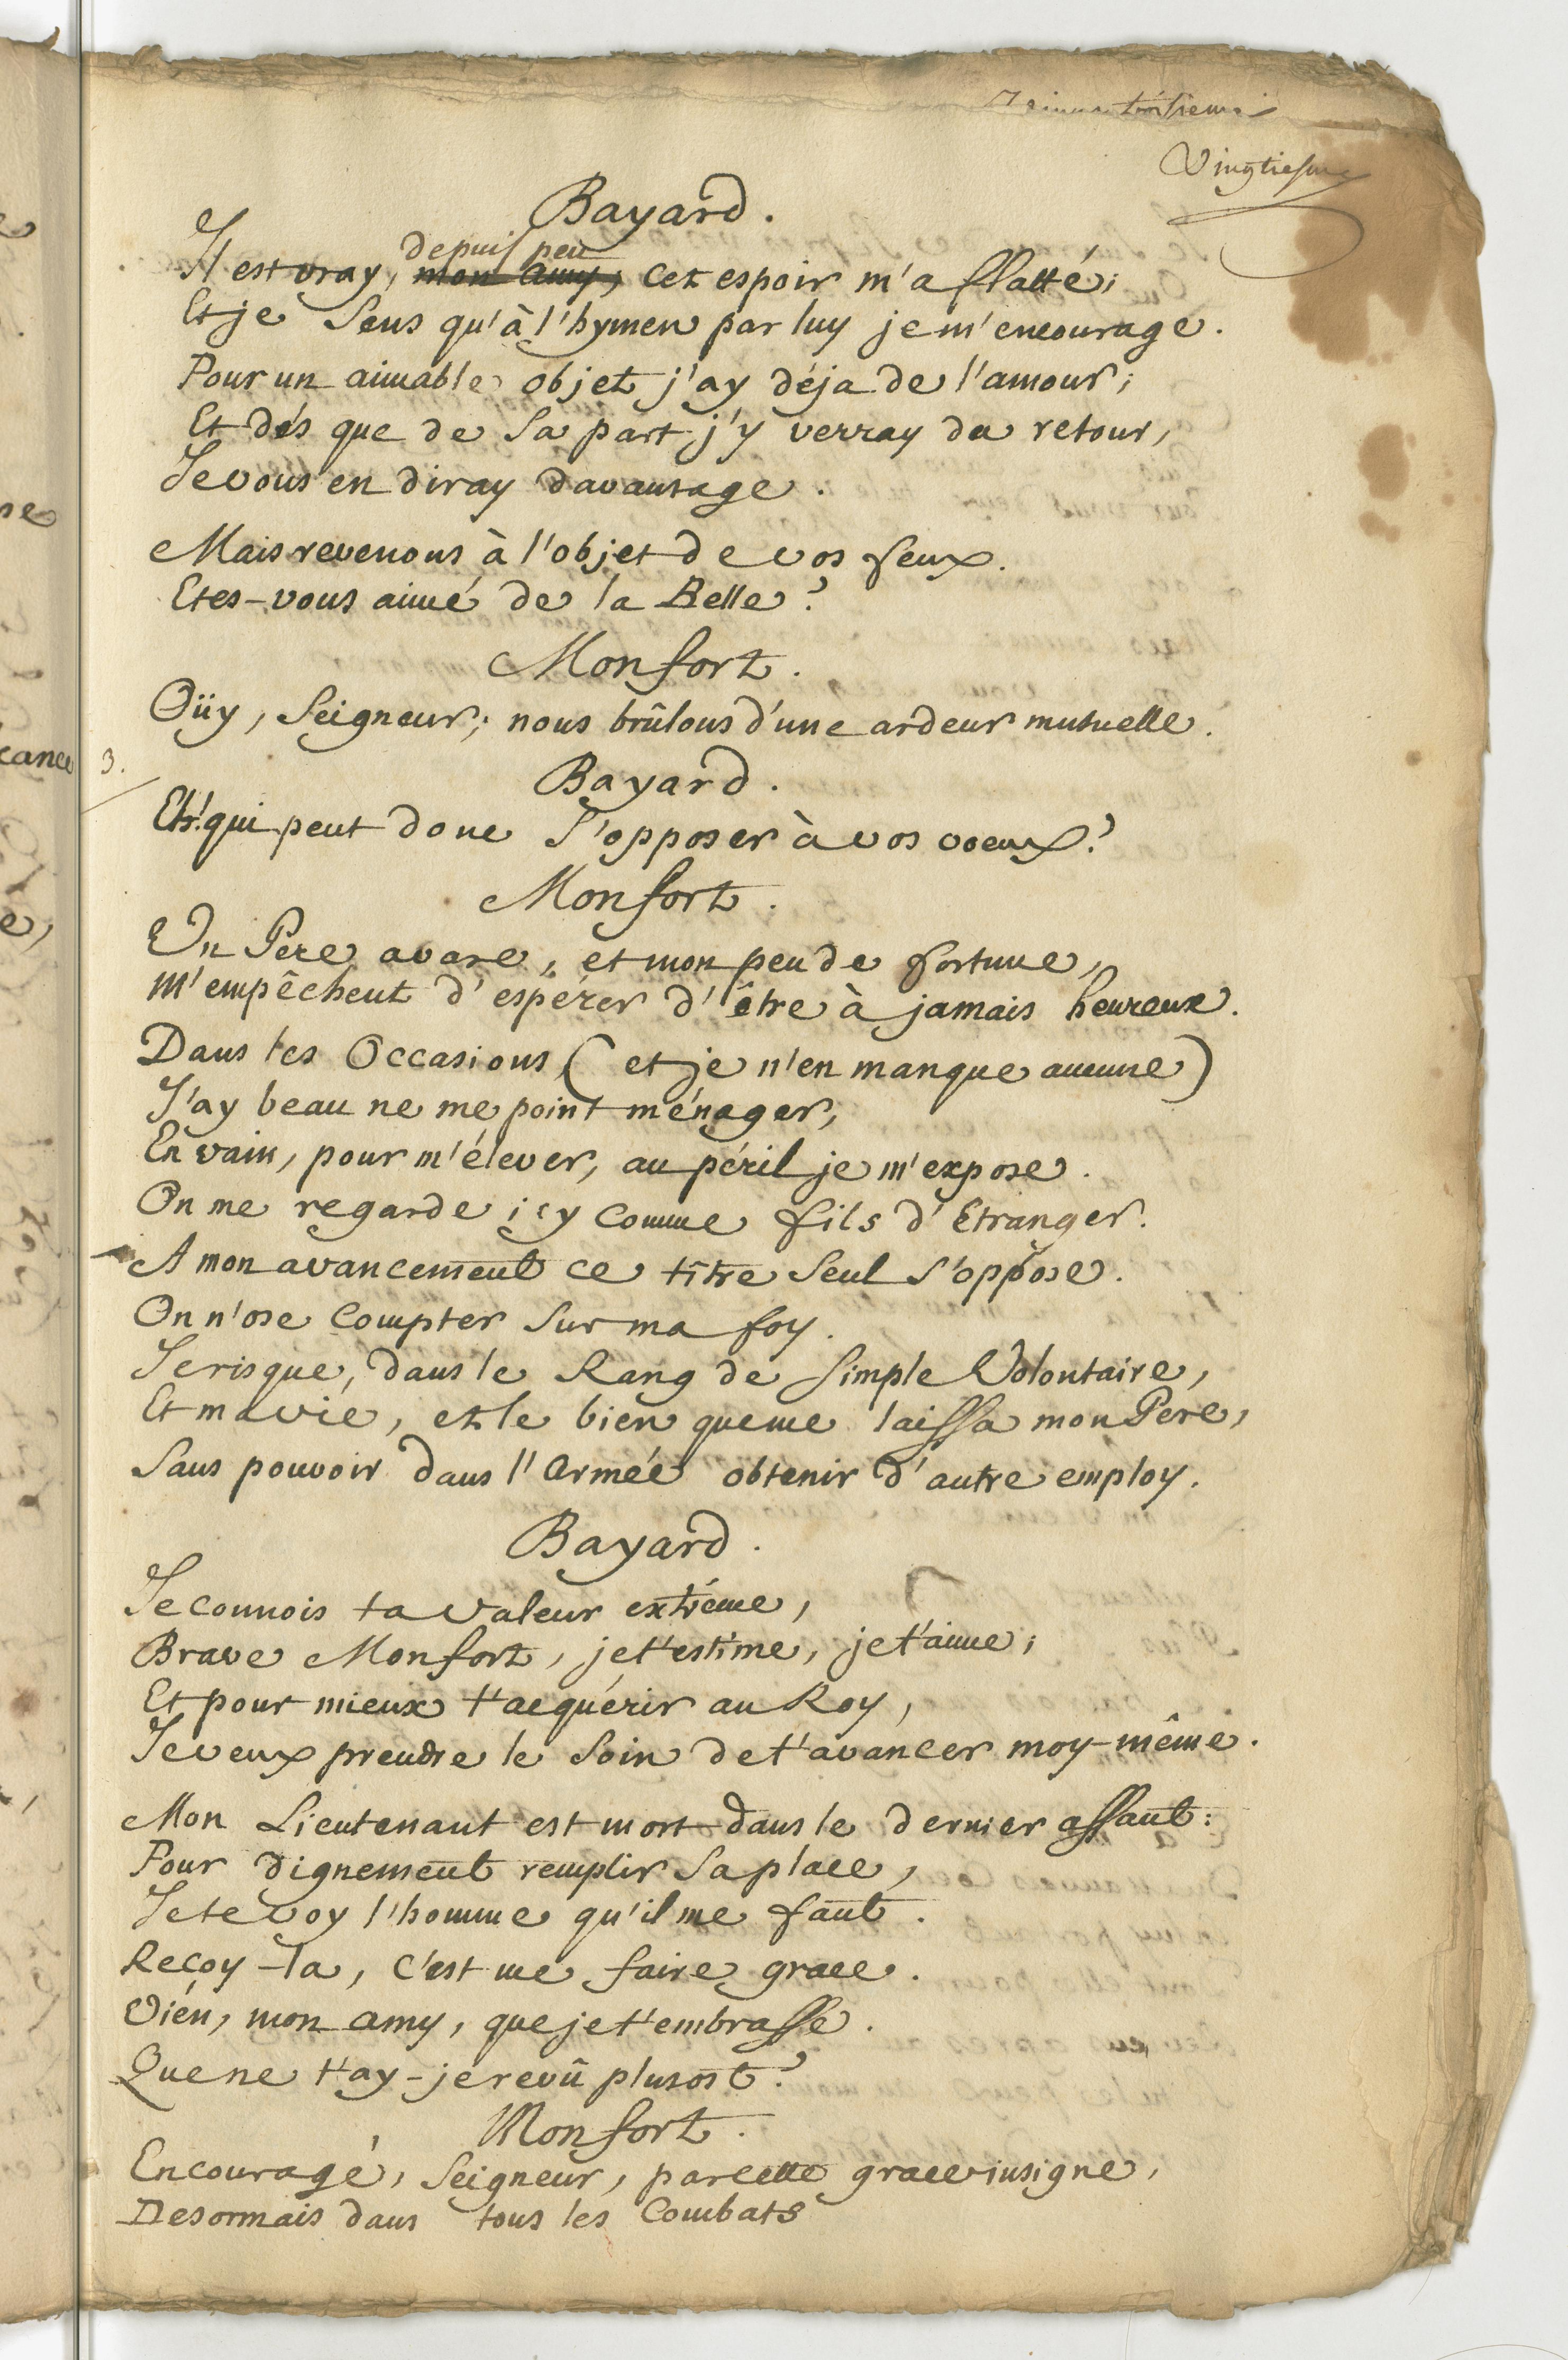 Vingtiesme
Bayard.
depuis peu
Il est vray, mon amy, cet espoir m'a flatté;
Et je sens qu'à l'hymen par luy je m'encourage.
Pour un aimable objet j'ay déja de l'amour;
Et dés que de sa part j'y verray du retour,
Je vous en diray davantage.
Mais revenons à l'objet de vos feux.
Etes-vous aimé de la Belle?
Monfort.
Oüy, Seigneur; nous brûlons d'une ardeur mutuelle.
3.
Bayard.
Eh! qui peut donc s'opposer à vos voeux?
Monfort.
Un Pere avare, et mon peu de fortune,
M'empêchent d'espérer d'être à jamais heureux.
Dans les Occasions (et je n'en manque aucune)
J'ay beau ne me point ménager,
En vain, pour m'élever, au péril je m'expose.
On me regarde icy comme fils d'Etranger.
A mon avancement ce tître seul s'oppose.
On n'ose compter sur ma foy.
Je risque, dans le Rang de simple Volontaire,
Et ma vie, et le bien que me laissa mon Pere,
Sans pouvoir dans l'Armée obtenir d'autre employ.
Bayard.
Je connois ta valeur extréme,
Brave Monfort, je t'estime, je t'aime;
Et pour mieux t'acquérir au Roy,
Je veux prendre le soin de t'avancer moy-même.
Mon Lieutenant est mort dans le dernier assaut:
Pour dignement remplir sa place,
Je te voy l'homme qu'il me faut.
Reçoy-la, c'est me faire grace.
Vién, mon amy, que je t'embrasse.
Que ne t'ay-je revû plutost?
Monfort.
Encouragé, Seigneur, par cette grace insigne,
Desormais dans tous les Combats